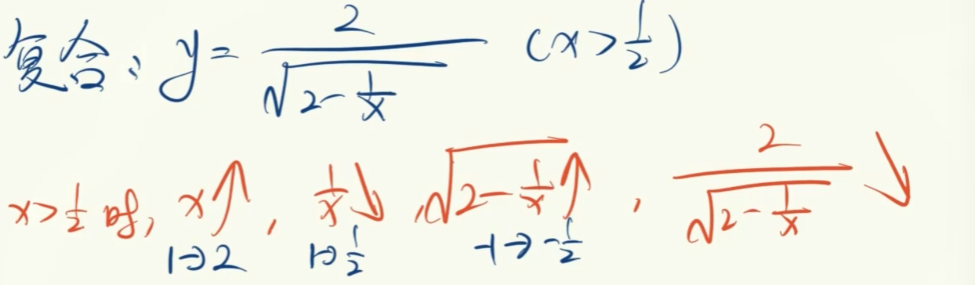 复合: y = 2/√(2-1/x) (x>1/2)
x>1/2 时, x↑, 1/x↓, √(2-1/x)↑, 2/√(2-1/x)↓
1→2 1→1/2 -1→-1/2